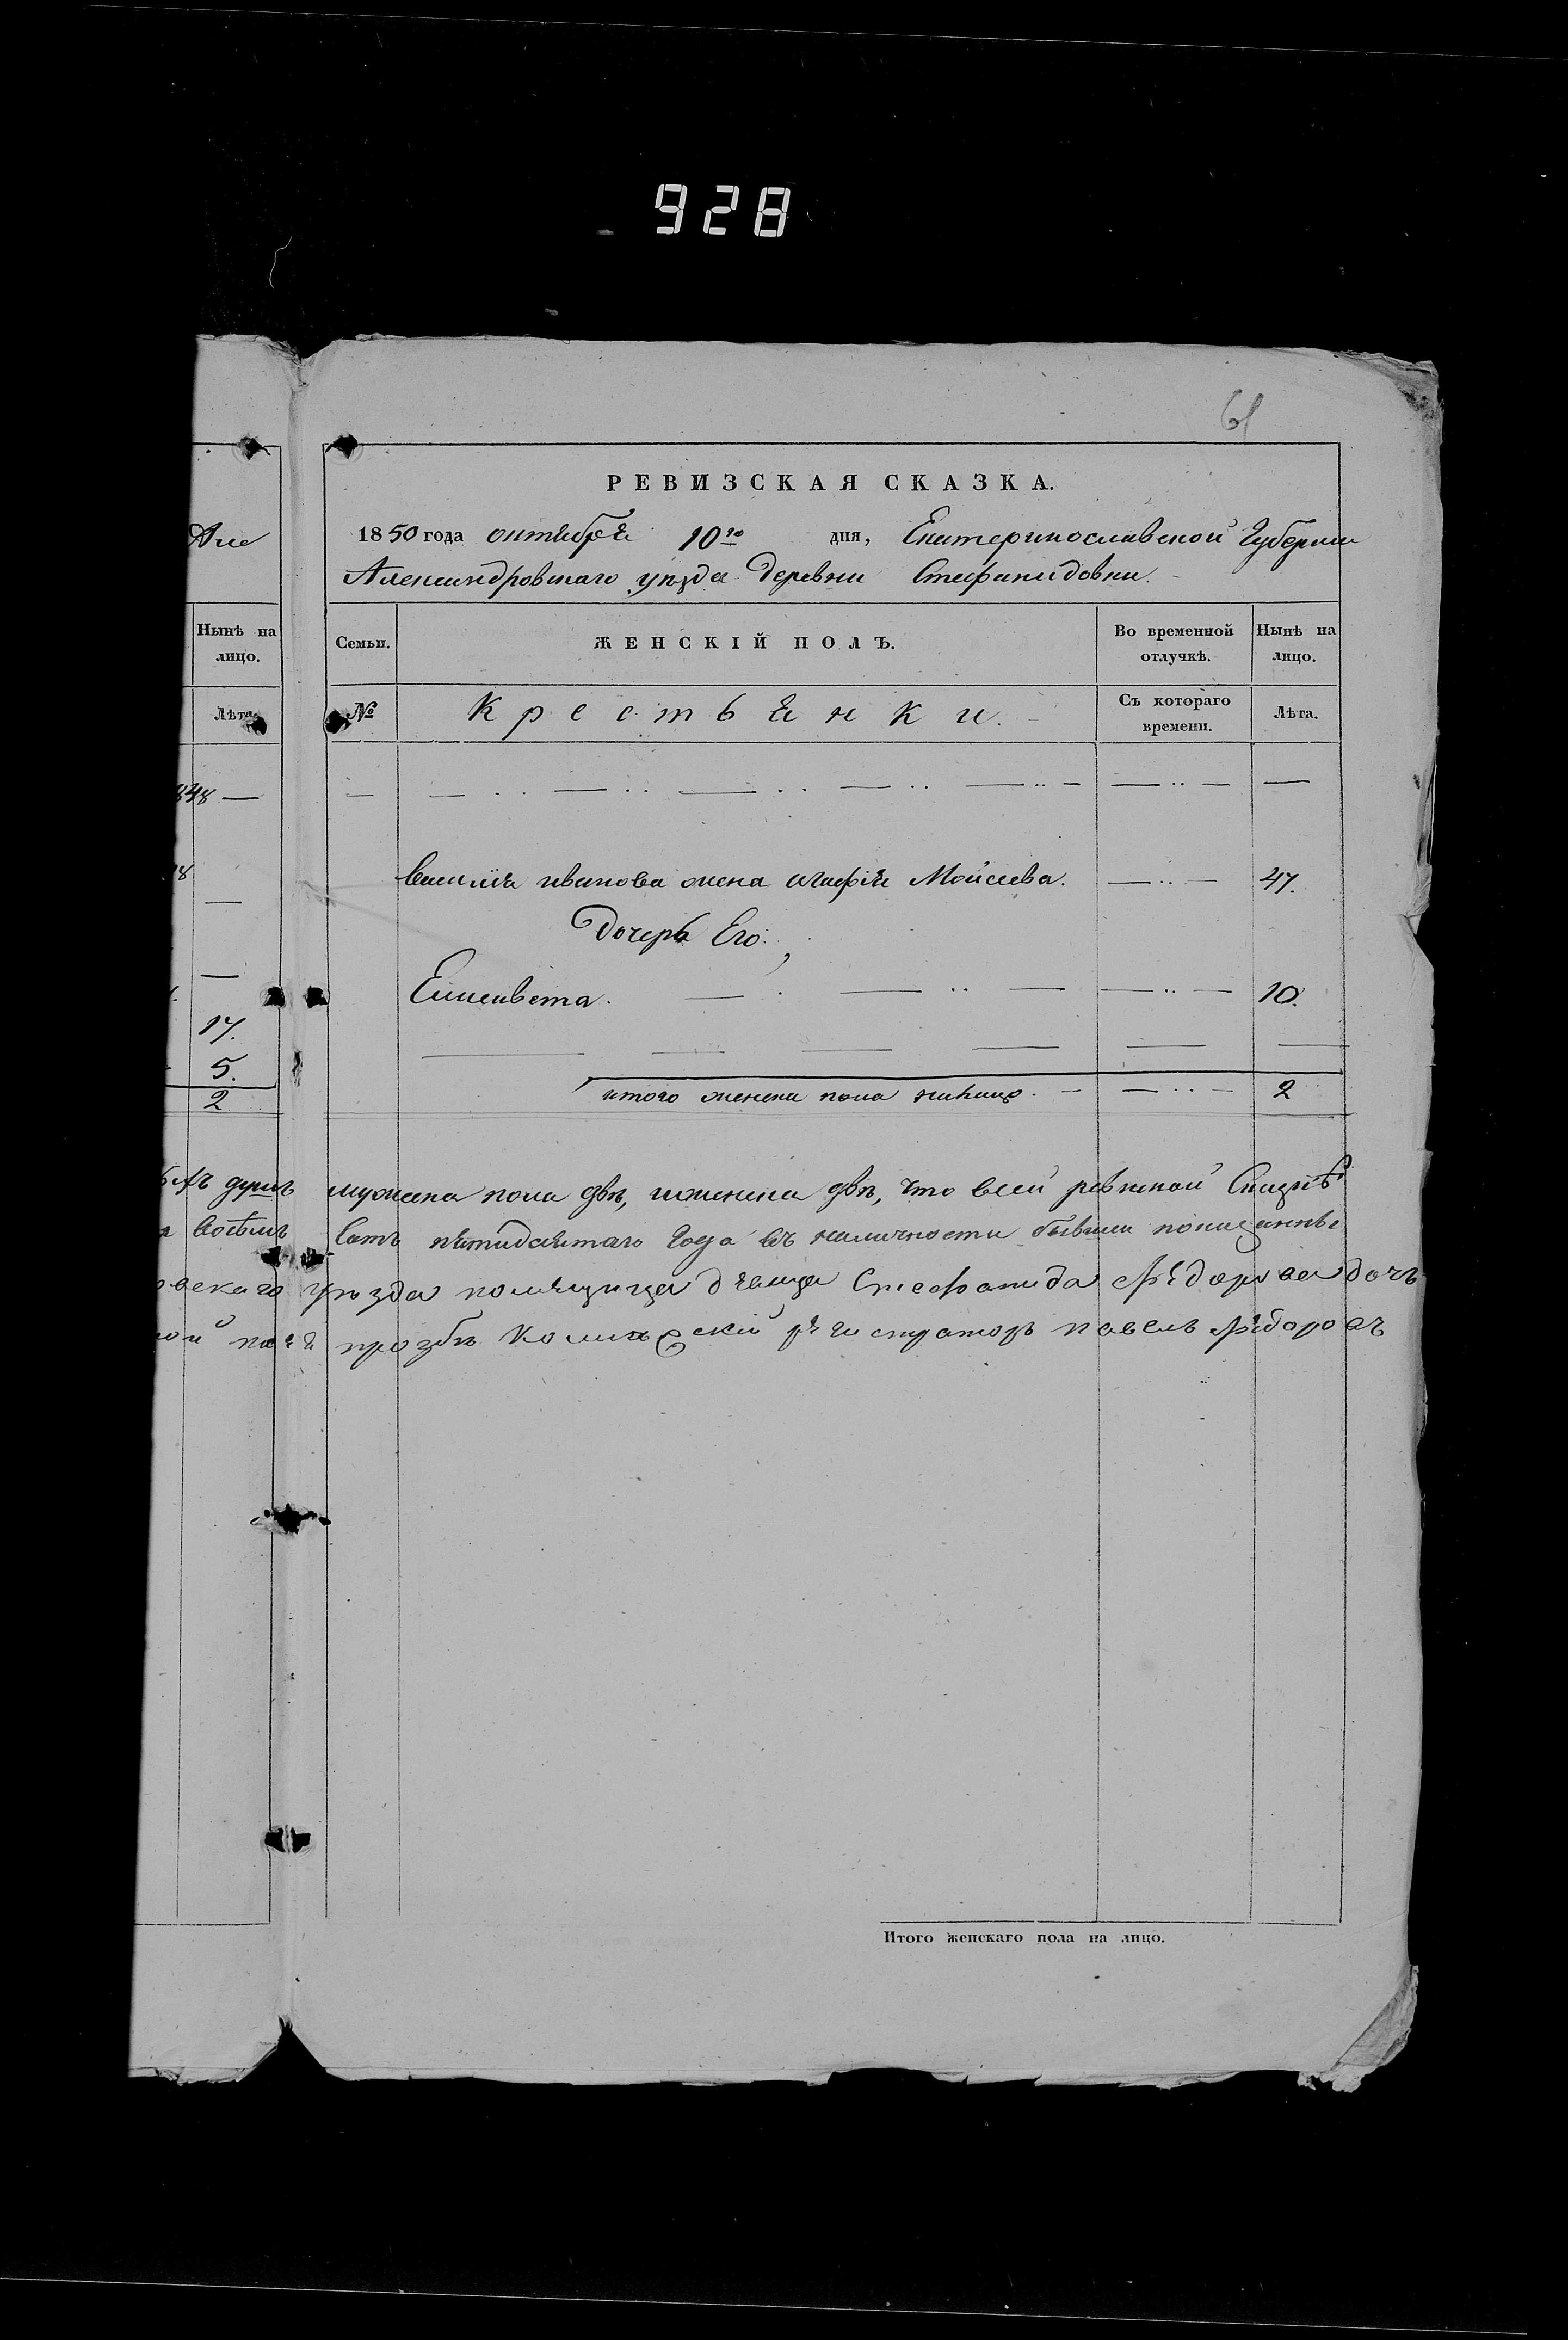 928
61
РЕВИЗСКАЯ СКАЗКА.
1850 года октября 10го дня, Екатеринославской Губернии
Александровскаго уѣзда деревни Стефанидовки.
Але
Нынѣ на лицо.
Лѣта.
848 —
18
—
—
17.
5.
2
Семьи. ЖЕНСКІЙ ПОЛЪ. Во временной отлучкѣ. Нынѣ на лицо.
№ Крестьянки. Съ котораго времени. Лѣта.
Василия иванова жена агафія Мойсеева. — 47.
Дочерь Его.
Елисавета. — 10.
итого женска пола налицо. — 2
душъ мужеска пола двѣ, иженска двѣ, что всей ревизкой Сказкѣ
восѣмъ сотъ пятидесятаго года въ наличности бывшия показанные
овскаго уѣзда помѣщица дѣвица Стефанида Фёдорова дочь
ной прозбѣ Колижский регистраторъ павелъ Фёдоровъ
Итого женскаго пола на лицо.